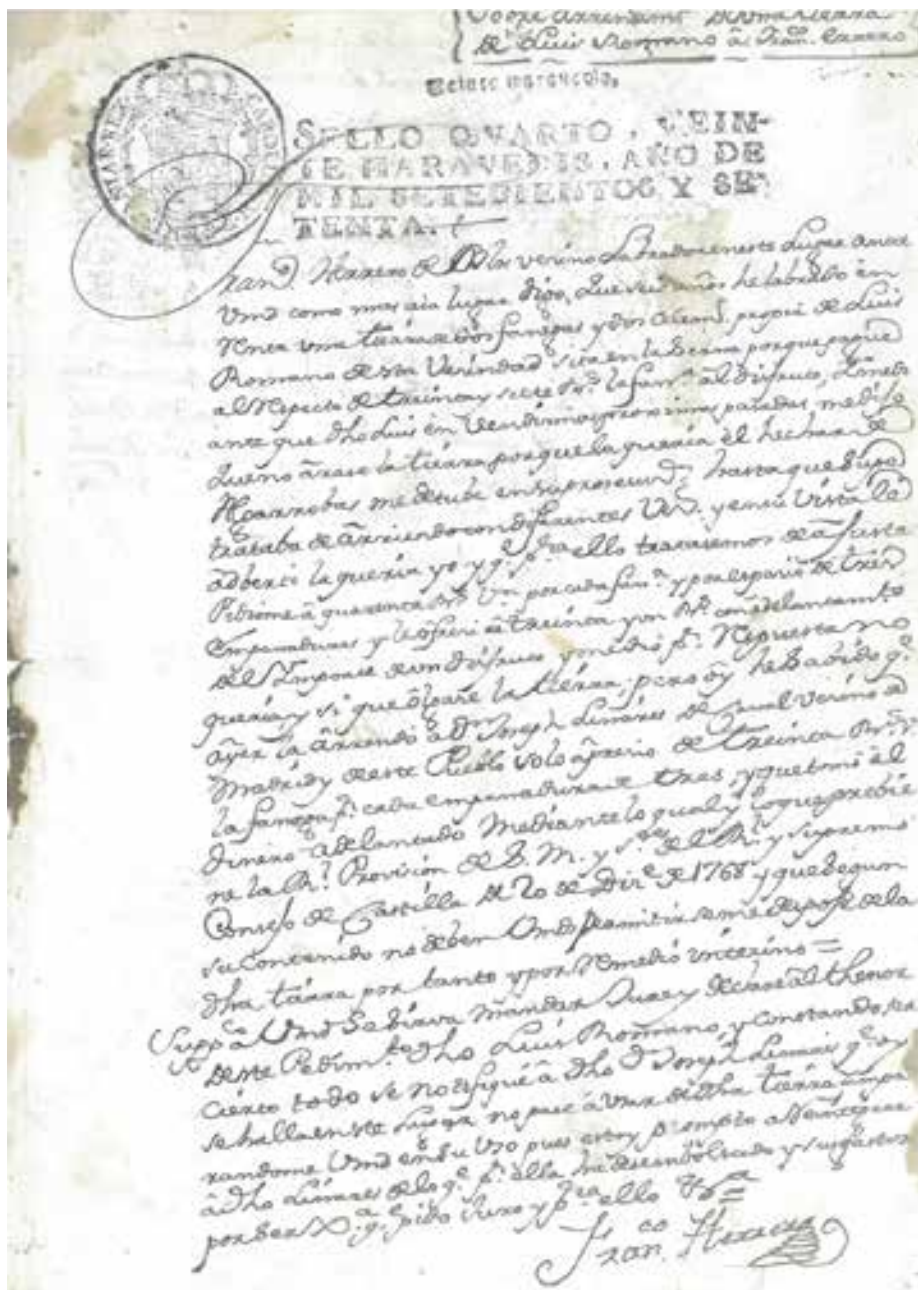 Sobre Arrendamto de una tierra
de Luis Romano â Fran. Errero
Veinte maravedis.
SELLO QVARTO, VEIN-
TE MARAVEDIS, AÑO DE
MIL SETECIENTOS Y SE-
TENTA.
Franco Herrero de vecino Labrador en este Lugar ante
Vmd como mas aia lugar digo, Que seis años he labrado en
Renta una tierra de dos fanegas y dos propia de Luis
Romano de esta Vecindad sita en la porque pague
al Respecto de treinta y siete Rs la fana al disfruto,
ante que dho Luis en Vendimias proximas pasadas, me dijo
que no arase la tierra porque la queria êl hechar de
Algarrobas me detube en su hasta que supo
trataba de ârriendo con diferentes Vs. y en su Vista la
âdberti la queria yo y qe pra ello tratasemos de âjuste
Pidiome â quarenta Rs Vn por cada fana y por espacio de tres
Empanaduras y le ôfreci â treinta y un Rs con adelantamto
del Importe de un disfruto y medio Repuesta no
queria y si que ôlbidase la tiérra; pero oy he Sabido qe
ayer la ârrendó â Dn Joseph Linares de vecino de
Madrid y de este Pueblo solo âprecio de treinta Rs Vn
la fanega pr cada empanadura de tres, y que tomó el
dinero âdelantado Mediante lo qual y lo que prebie
ne la Rl Provisión de S. M. y Ses de el Rl y Supremo
Consejo de Castilla de 20 de Dice de 1768 y que segun
su Contenido no deben Vmds permitir se me despoje de la
dha tiérra por tanto y por Remedio interino =
Suppco â Vmd Se Sirva Mandar Jure y declare âl thenor
de este Pedimto dho Luis Romano, y constando, ser
ciérto todo se notifique â dho Dn Joseph Linares qe oy
se halla en este Lugar no pase â Vsar de dha tiérra âmpa
randome Vmd en Su Vso pues estoy prompto a Reintegrar
â dho Linares de lo qe pr ella ha desembolsado y sus gastos
por ser Xa qe pido Juro y pra ello Vsa =
Franco Herrero